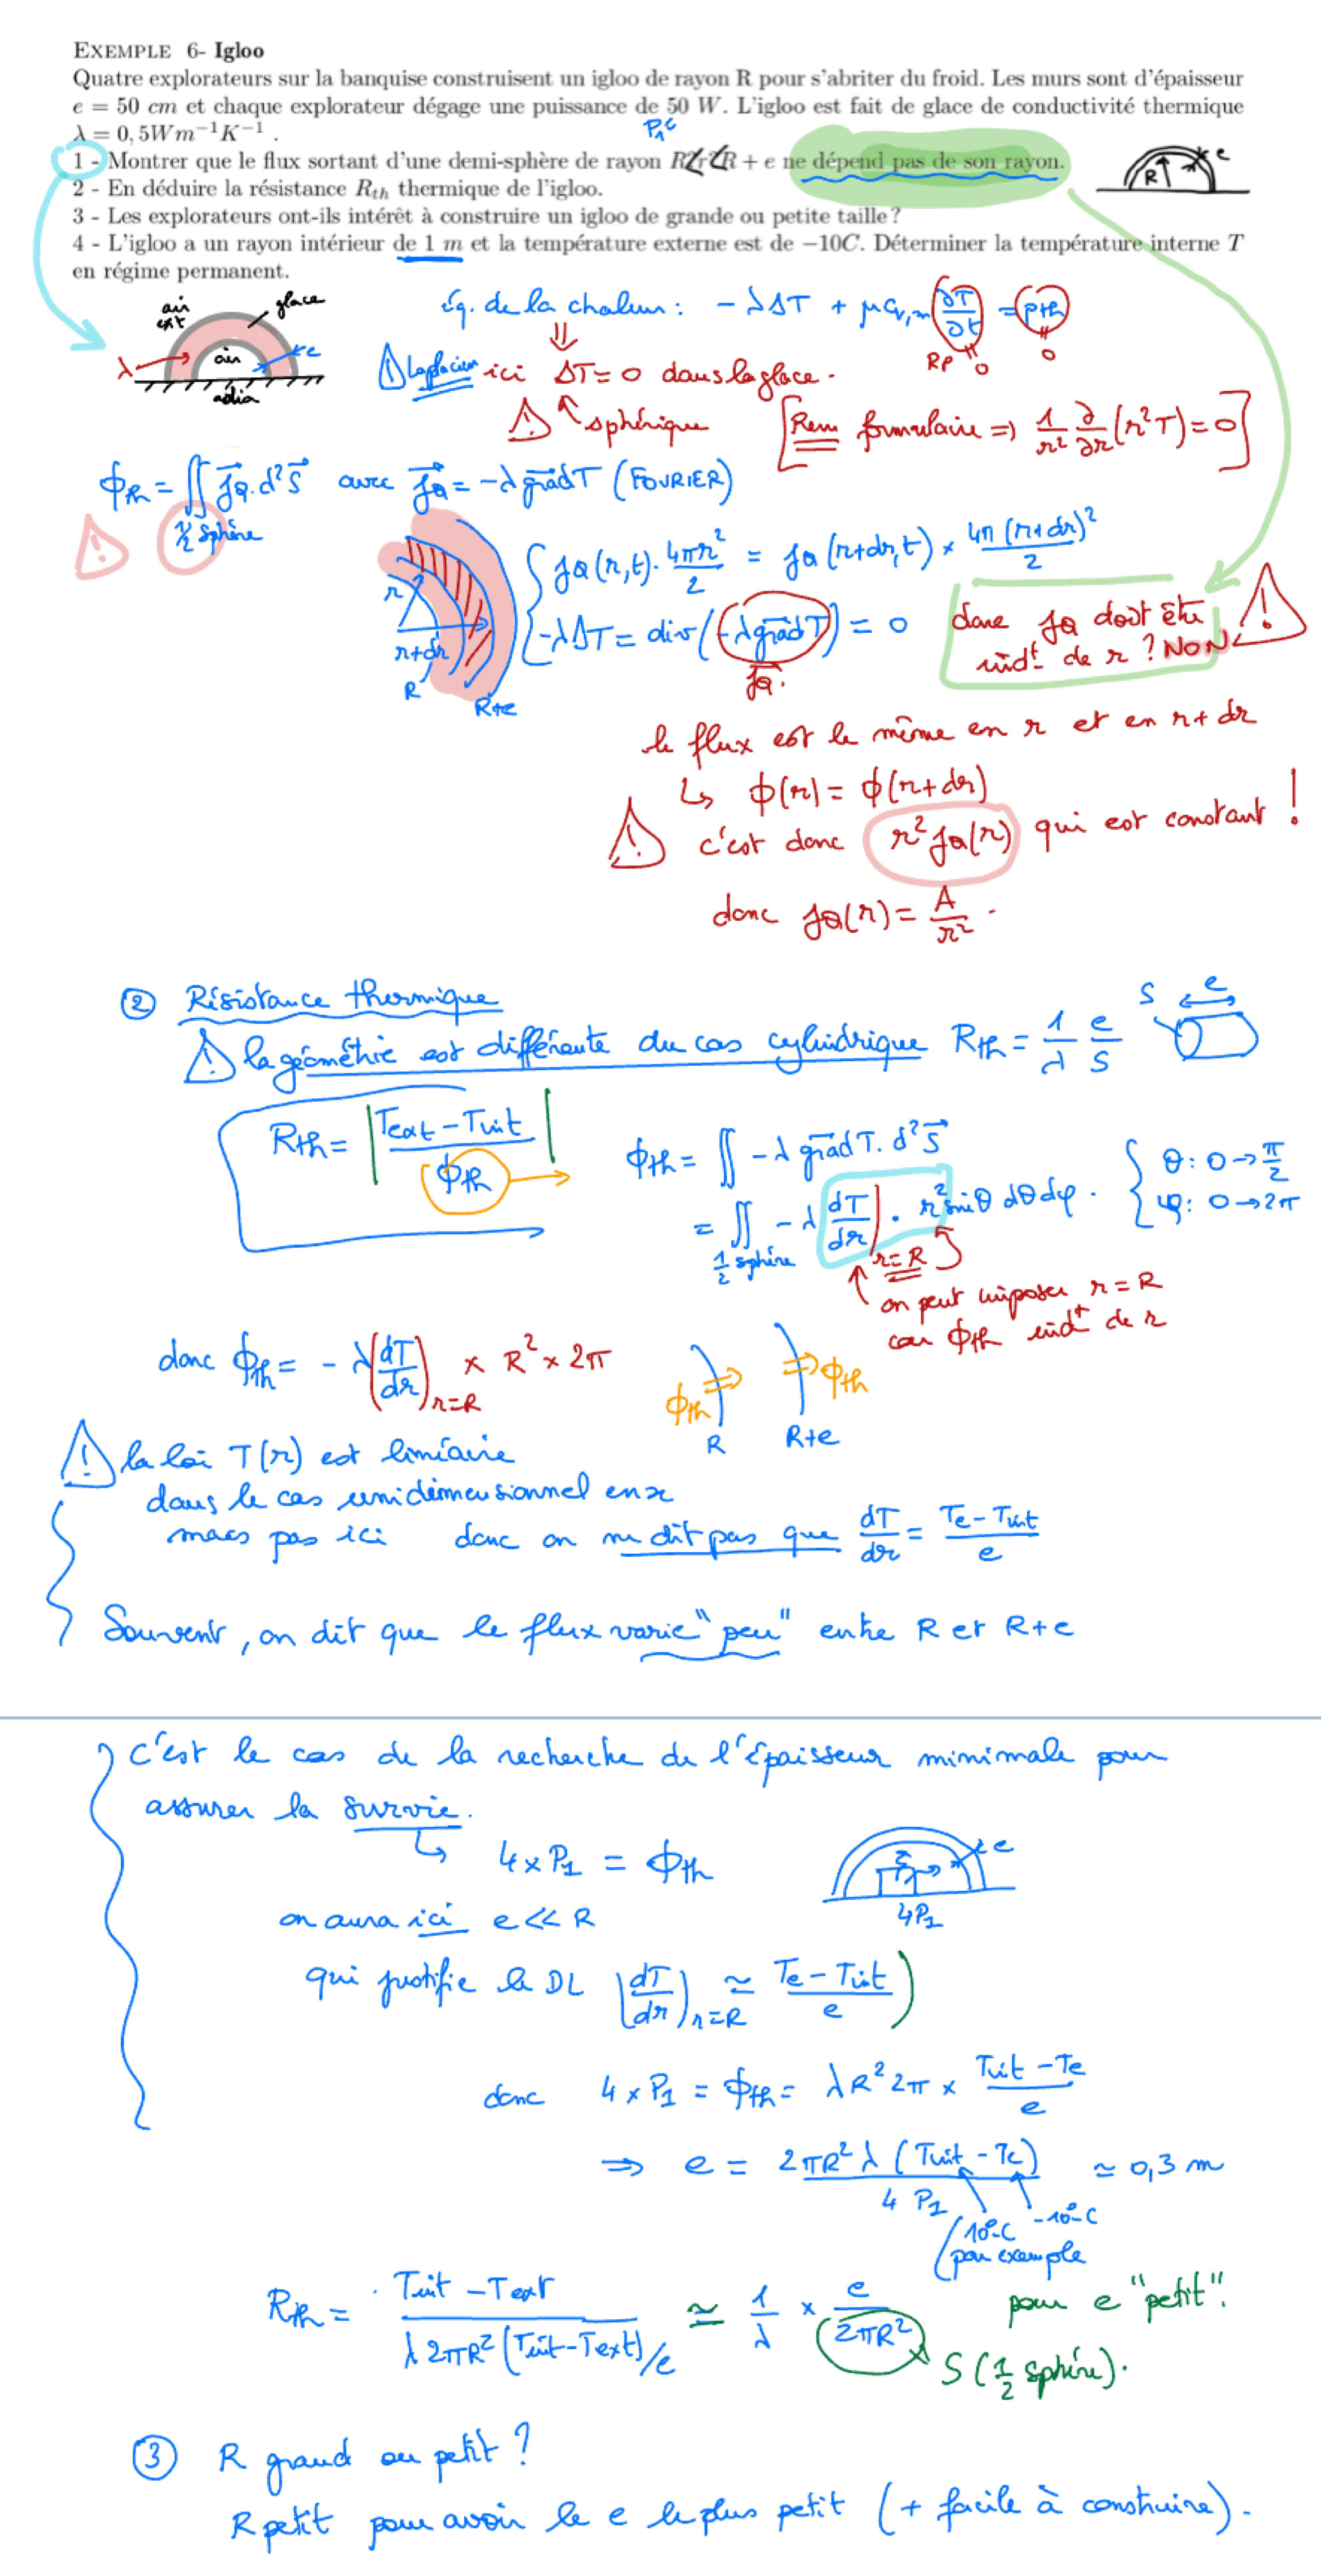 EXEMPLE 6- Igloo
Quatre explorateurs sur la banquise construisent un igloo de rayon R pour s'abriter du froid. Les murs sont d'épaisseur
e = 50 cm et chaque explorateur dégage une puissance de 50 W. L'igloo est fait de glace de conductivité thermique
λ = 0,5Wm⁻¹K⁻¹ .
P₁
1 - Montrer que le flux sortant d'une demi-sphère de rayon R<r<R + e ne dépend pas de son rayon.
2 - En déduire la résistance Rth thermique de l'igloo.
3 - Les explorateurs ont-ils intérêt à construire un igloo de grande ou petite taille ?
4 - L'igloo a un rayon intérieur de 1 m et la température externe est de −10C. Déterminer la température interne T
en régime permanent.
R e
air ext glace
λ air e
adia
Éq. de la chaleur : - λΔT + μcv,m ∂T/∂t = pth
RP 0 0
⇓
⚠ Laplacien ici ΔT = 0 dans la glace.
⚠ ↑ sphérique [Rem formulaire => 1/r² ∂/∂r (r²T) = 0]
ϕth = ∬ jQ . d²S avec jQ = -λ grad T (FOURIER)
! 1/2 sphère
jQ(r,t). 4πr²/2 = jQ(r+dr,t) × 4π(r+dr)²/2
-λΔT = div(-λ grad T) = 0
jQ.
r r+dr R R+e
donc jQ doit être
indt de r ? NON !
le flux est le même en r et en r+dr
↳ ϕ(r) = ϕ(r+dr)
⚠ c'est donc r² jQ(r) qui est constant !
donc jQ(r) = A/r² .
② Résistance thermique
⚠ la géométrie est différente du cas cylindrique Rth = 1/λ e/S
S e
Rth = |Text - Tint / ϕth|
ϕth = ∬ -λ grad T. d²S
= ∬ 1/2 sphère -λ dT/dr | r=R . r² sinθ dθ dφ . { θ : 0 → π/2
φ : 0 → 2π
on peut imposer r = R
car ϕth indt de r
donc ϕth = - λ (dT/dr) r=R × R² × 2π
ϕth ϕth
R R+e
⚠ la loi T(r) est linéaire
dans le cas unidimensionnel en x
mais pas ici donc on ne dit pas que dT/dr = Te - Tint / e
Souvent, on dit que le flux varie "peu" entre R et R+e
c'est le cas de la recherche de l'épaisseur minimale pour
assurer la survie.
↳ 4 × P₁ = ϕth
e
4P₁
on aura ici e << R
qui justifie le DL (dT/dr) r=R ≃ Te - Tint / e )
donc 4 × P₁ = ϕth = λR² 2π × Tint - Te / e
⇒ e = 2πR² λ (Tint - Te) / 4 P₁ ≃ 0,3 m
10°C -10°C
(par exemple
Rth = Tint - Text / λ 2πR² (Tint - Text)/e ≃ 1/λ × e/2πR² pour e "petit".
S (1/2 sphère).
③ R grand ou petit ?
R petit pour avoir le e le plus petit (+ facile à construire).